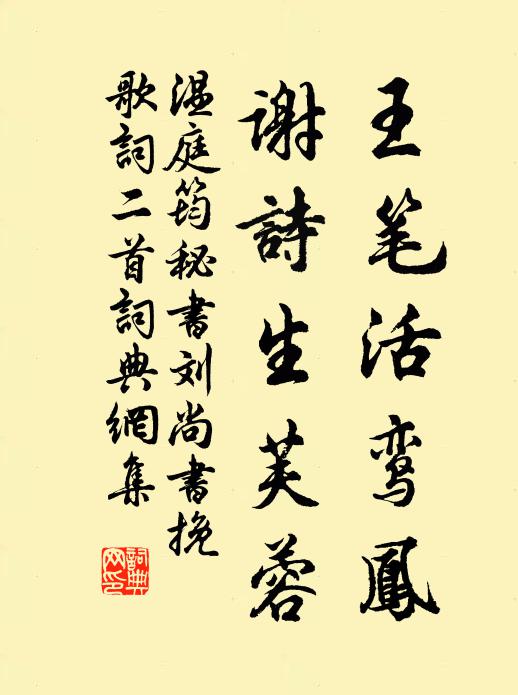 王笔活鸾鳳
謝詩生芙蓉
温庭筠秘書刘尚書挽
歌詞二首詞典網集
詞典网印